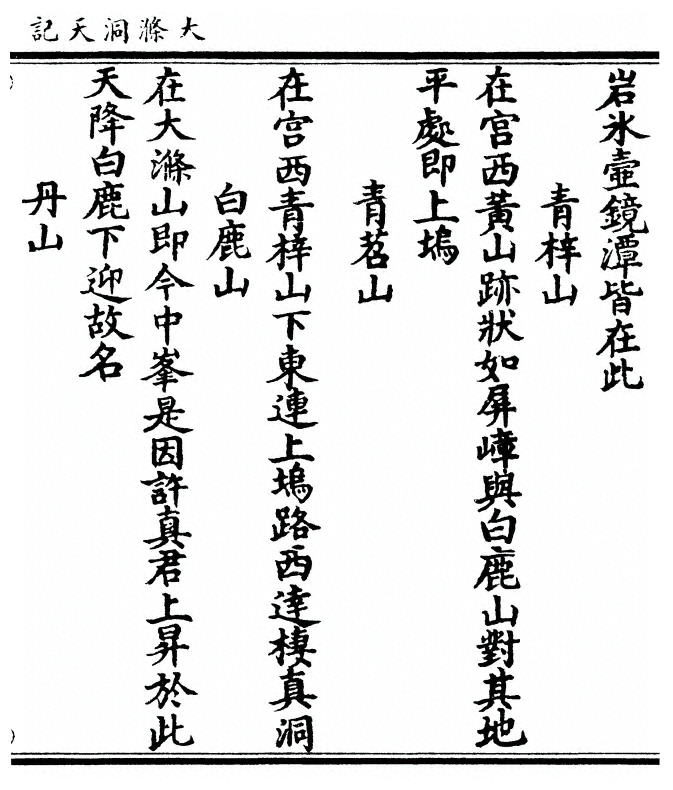 大滌洞天記
岩氷壺鏡潭皆在此
青梓山
在宫西黃山跡狀如屏嶂與白鹿山對其地
平處即上塢
青茗山
在宫西青梓山下東連上塢路西達棲真洞
白鹿山
在大滌山即今中峯是因許真君上昇於此
天降白鹿下迎故名
丹山